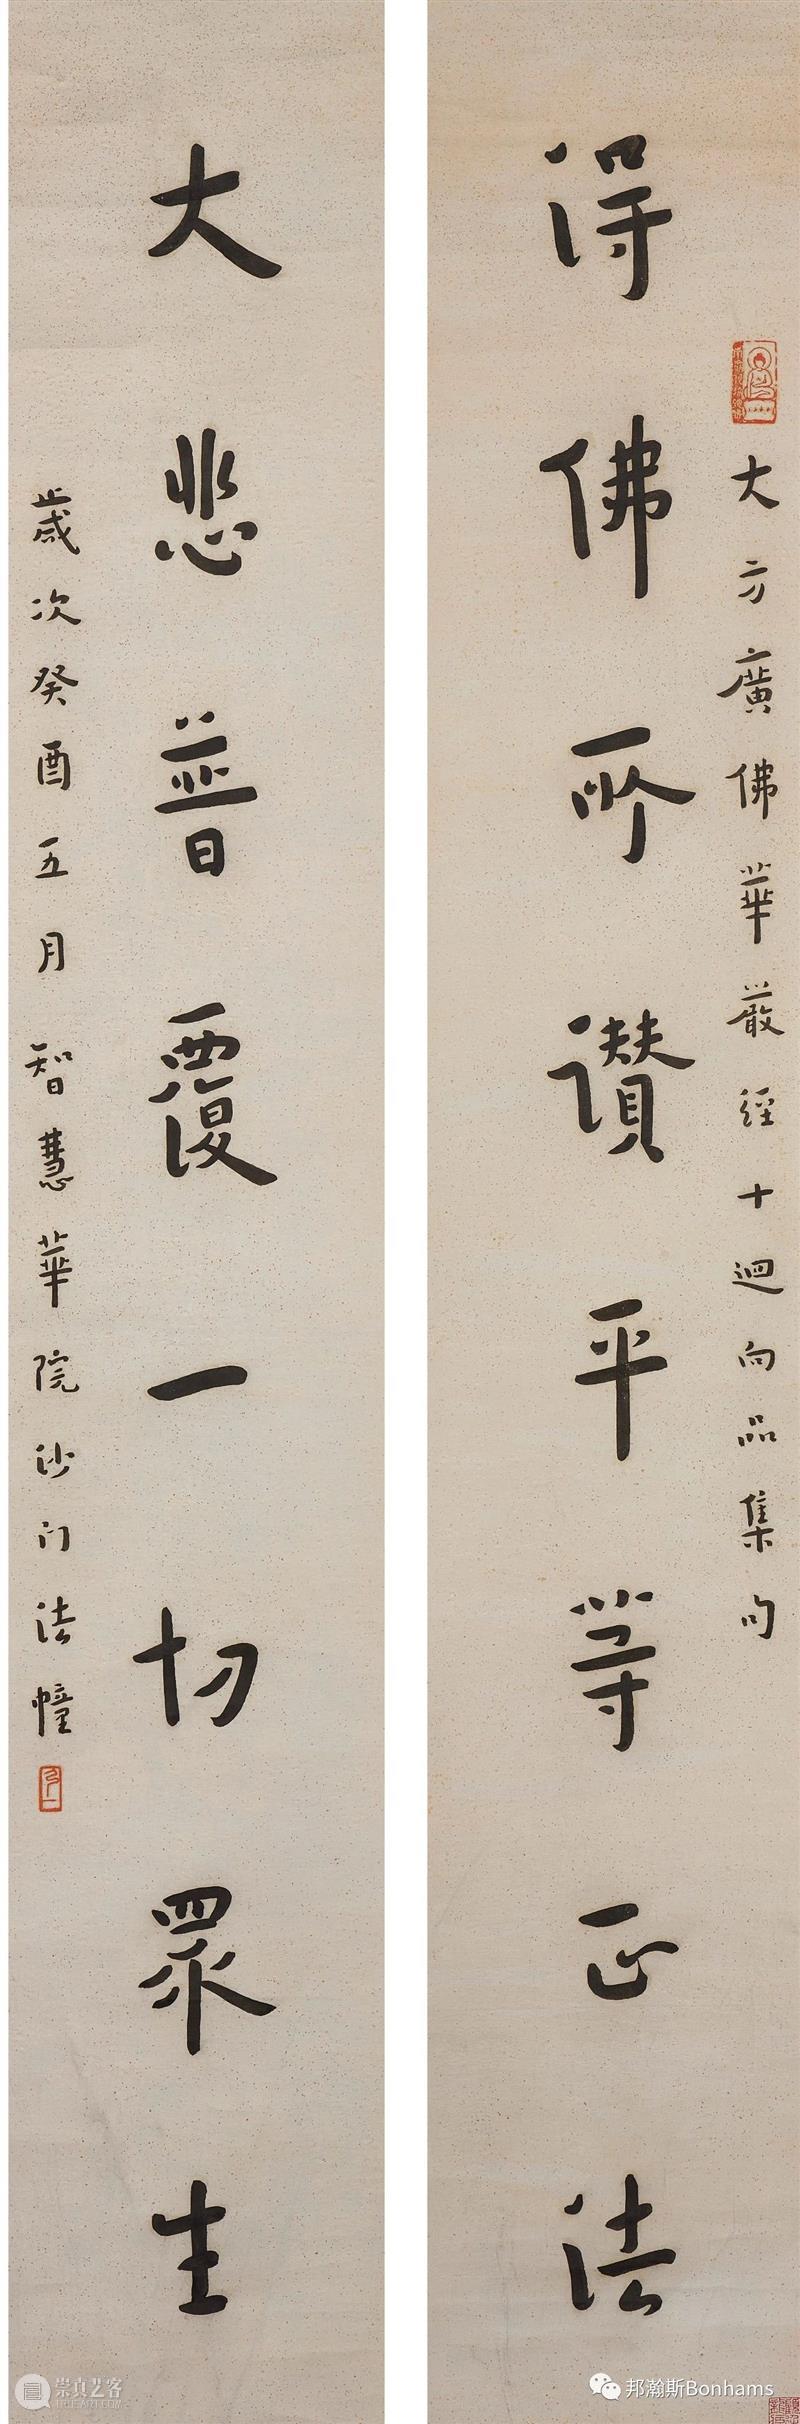 大方廣佛華嚴經十迴向品集句
得佛所讃平等正法
大悲普覆一切眾生
歲次癸酉五月智慧華院沙门法幢
崇真艺客
邦瀚斯Bonhams